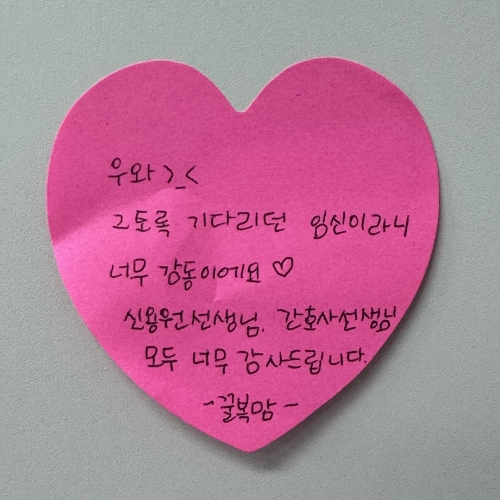 우와 >_<
그토록 기다리던 임신이라니
너무 감동이에요 ♡
신용원선생님, 간호사선생님
모두 너무 감사드립니다.
-꿀복맘-